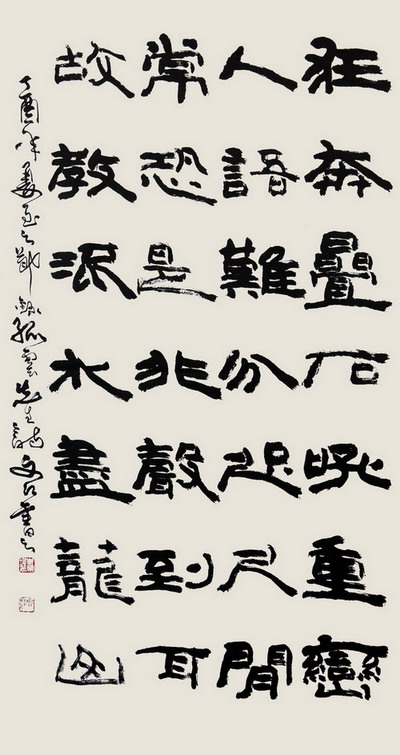 狂奔疊石吼重巒
人語難分咫尺間
常恐是非聲到耳
故教流水盡籠山
丁酉年夏至之節錄孤雲先生詩